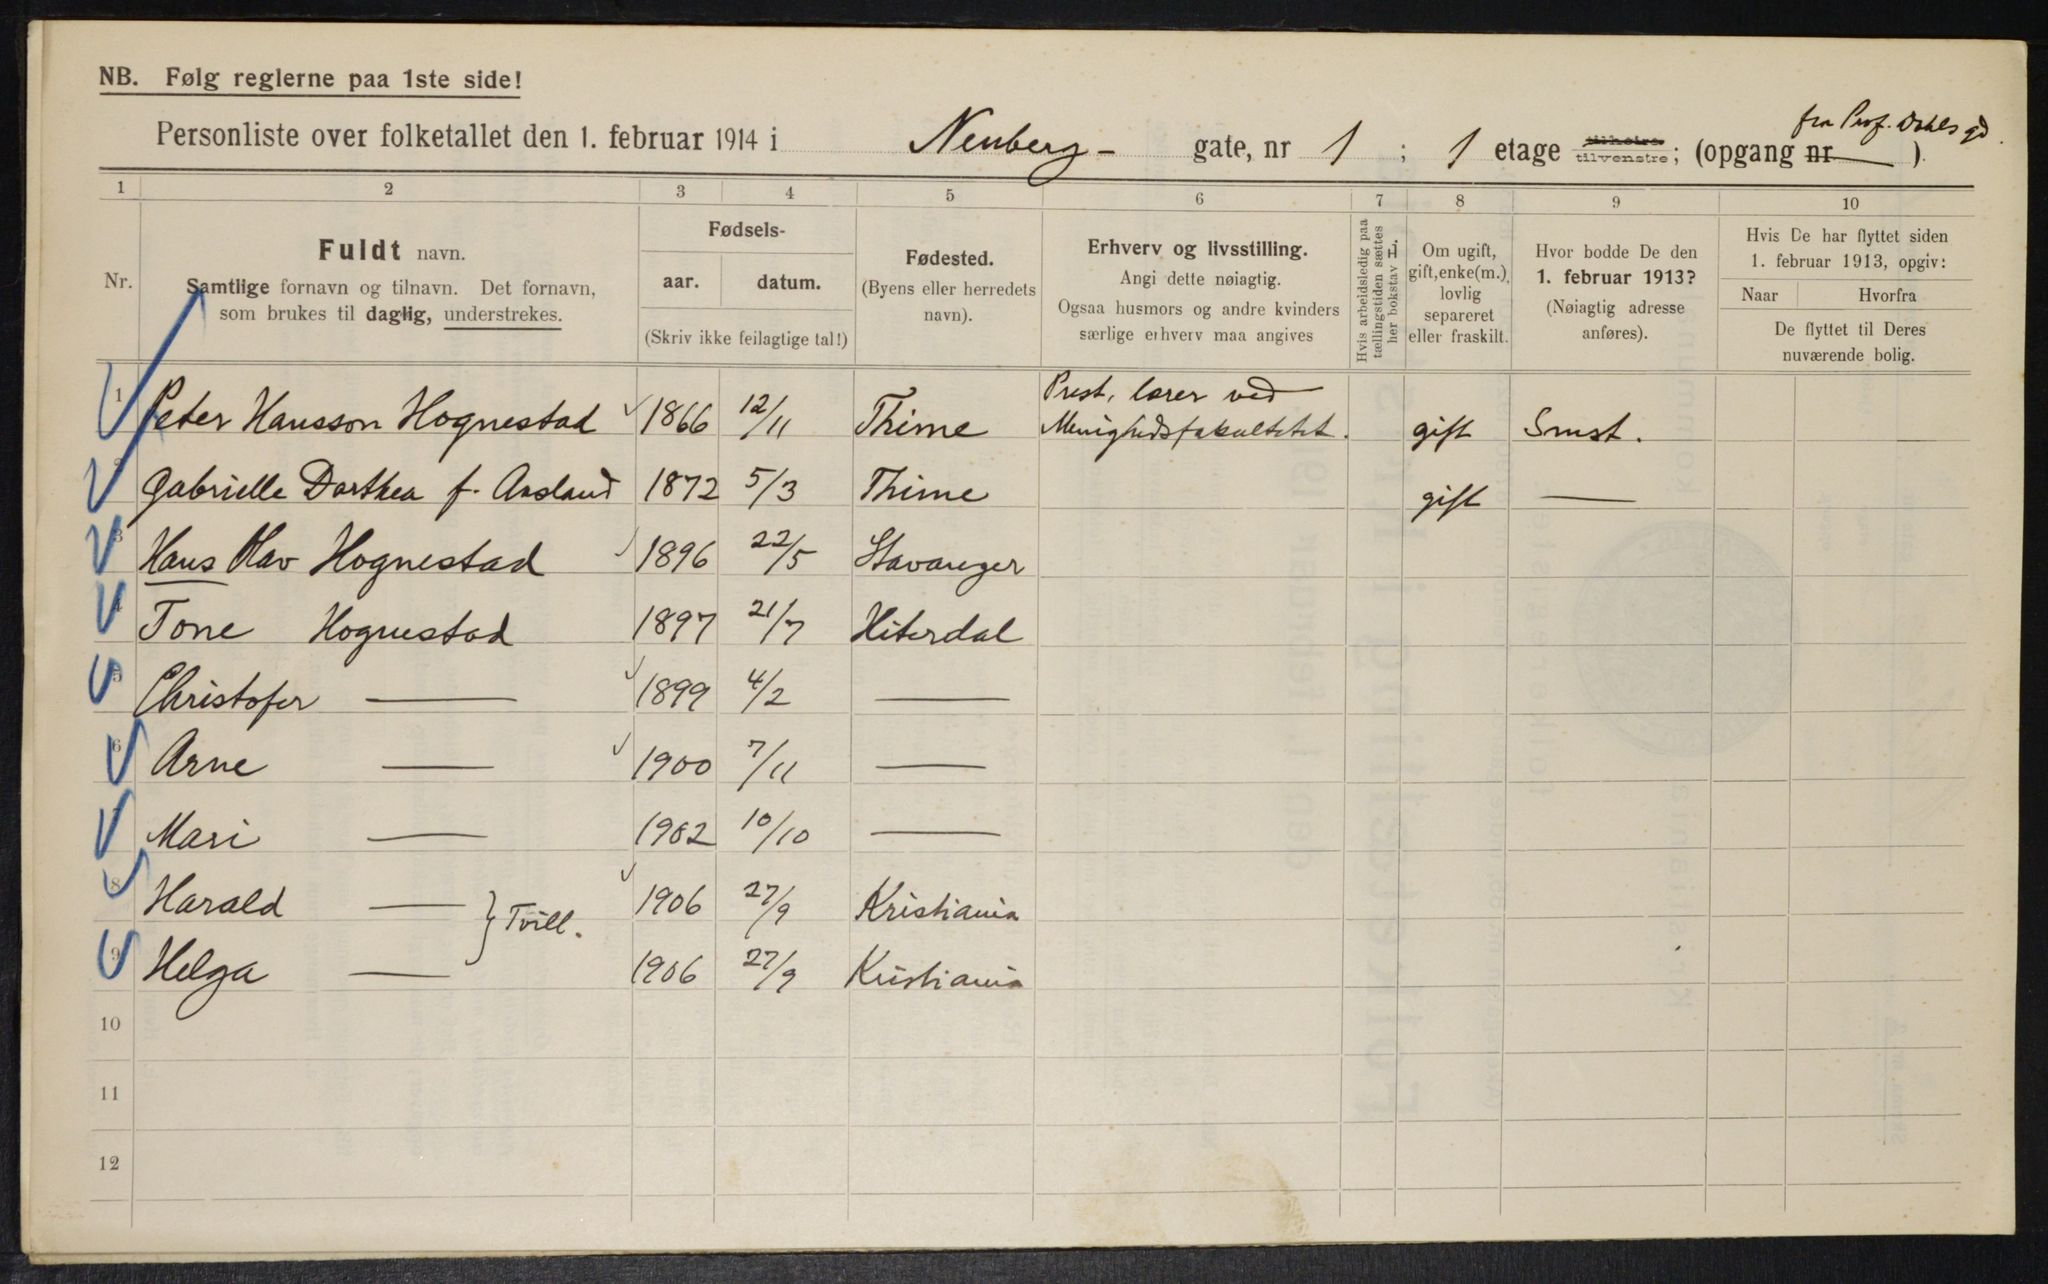 NB. Følg reglerne paa 1ste side!
fra Prof. Dahls gd.
Personliste over folketallet den 1. februar 1914 i Neuberg- gate, nr 1 ; 1 etage tilhøire tilvenstre; (opgang nr )
1 2 3 4 5 6 7 8 9 10
Nr.
Fuldt navn.
Samtlige fornavn og tilnavn. Det fornavn,
som brukes til daglig, understrekes.
Fødsels-
aar. datum.
(Skriv ikke feilagtige tal!)
Fødested.
(Byens eller herredets
navn).
Erhverv og livsstilling.
Angi dette nøiagtig.
Ogsaa husmors og andre kvinders
særlige erhverv maa angives
Hvis arbeidsledig paa
tællingstiden sættes
her bokstav L.
Om ugift,
gift, enke(m.),
lovlig
separeret
eller fraskilt.
Hvor bodde De den
1. februar 1913?
(Nøiagtig adresse
anføres).
Hvis De har flyttet siden
1. februar 1913, opgiv:
Naar Hvorfra
De flyttet til Deres
nuværende bolig.
1 Peter Hansson Hognestad 1866 12/11 Thime Prest, lærer ved
Menighedsfakultetet. gift Smst.
2 Gabrielle Dorthea f. Aasland 1872 5/3 Thime gift —
3 Hans Olav Hognestad 1896 22/5 Stavanger
4 Tone Hognestad 1897 21/7 Hiterdal
5 Christofer — 1899 4/2 —
6 Arne — 1900 7/11 —
7 Mari — 1902 10/10 —
8 Harald — 1906 27/9 Kristiania
} Tvill.
9 Helga — 1906 27/9 Kristiania
10
11
12